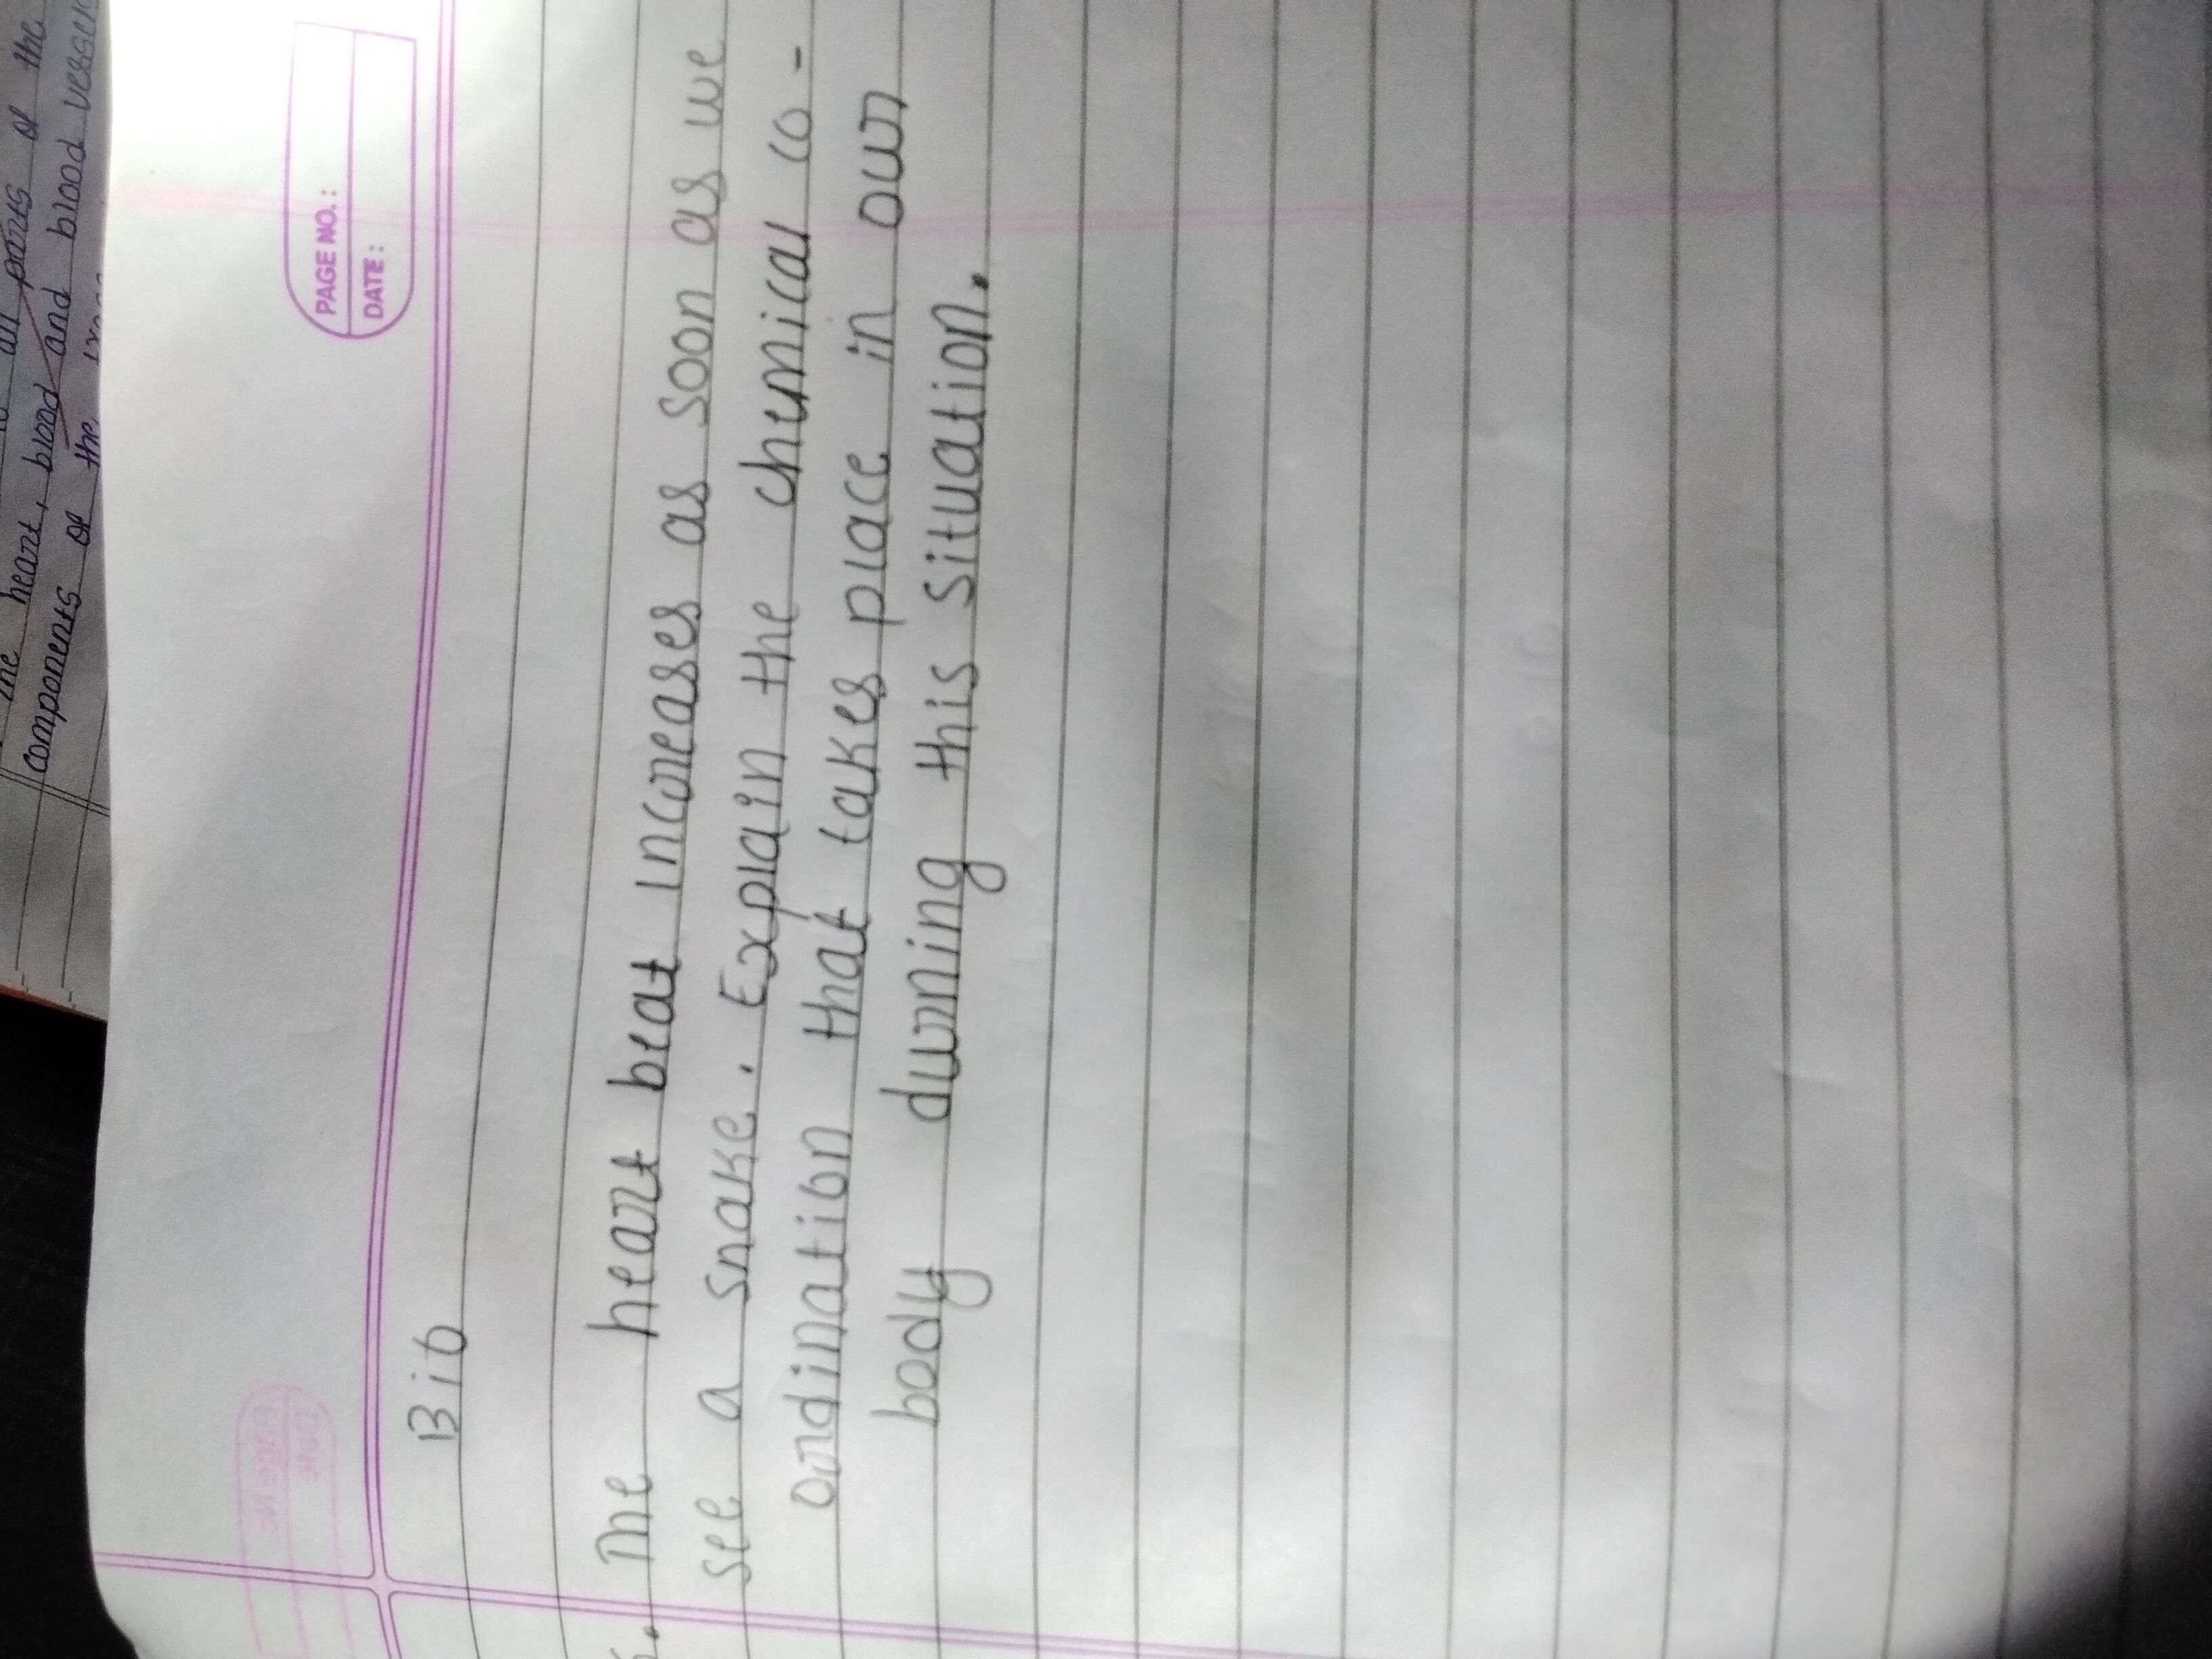 the heart, blood and blood vessels
components of the
all parts of the
PAGE NO. :
DATE :
Page No.
Date
Bio
The heart beat increases as soon as we
see a snake. Explain the chemical co-
ordination that takes place in our
body during this situation.